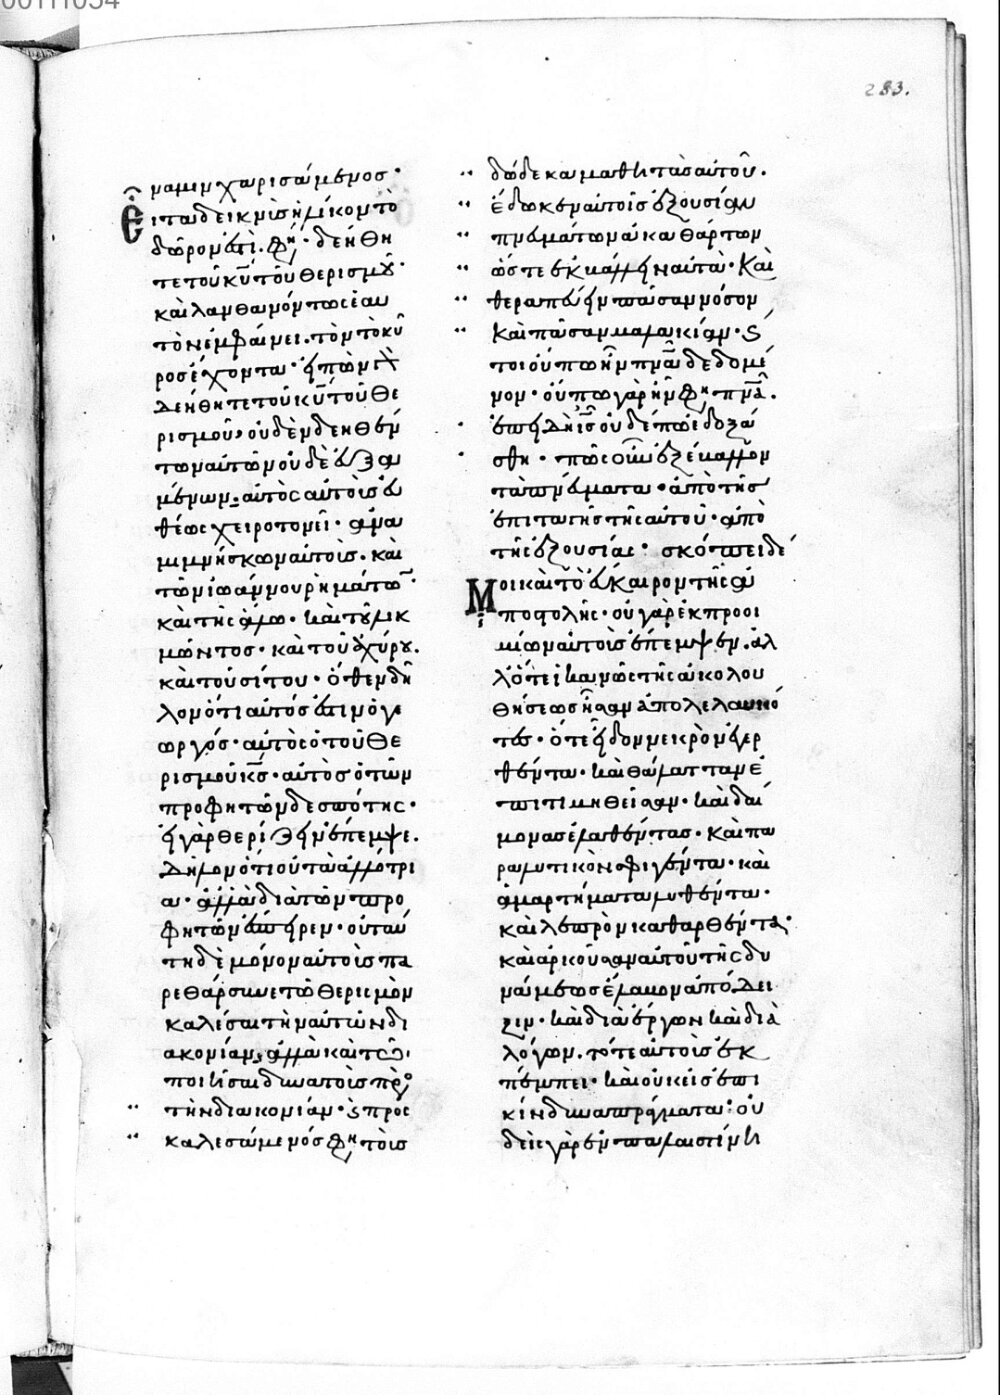 283.
ναμιν χαρισάμενος·
Εἶτα δεικνὺς ἡλίκον τὸ
δῶρον ἐστὶ. φη(σί)· δεήθη
τε τοῦ κ̅υ̅ τοῦ θερισμοῦ·
καὶ λανθανόντως ἑαυ
τὸν ἐμφαίνει. τὸν τὸ κῦ
ρος ἔχοντα· εἰπὼν γὰρ
δεήθητε τοῦ κ̅υ̅ τοῦ θε
ρισμοῦ, οὐδὲν δεηθέν
των αὐτῶν οὐδὲ εὐξα
μένων· αὐτὸς αὐτοὺς εὐ
θέως χειροτονεῖ· ἀνα
μιμνήσκων αὐτοὺς. καὶ
τῶν ἰωάννου ῥημάτων·
καὶ τῆς ἅλω. καὶ τοῦ λικ
μῶντος· καὶ τοῦ ἀχύρου.
καὶ τοῦ σίτου· ὅθεν δῆ
λον ὅτι αὐτός ἐστιν ὁ γε
ωργός· αὐτὸς ὁ τοῦ θε
ρισμοῦ κ̅ς̅· αὐτὸς ὁ τῶν
προφητῶν δεσπότης·
εἰ γὰρ θερίζειν ἔπεμψε.
δῆλον ὅτι οὐ τὰ ἀλλότρι
α· ἀλλὰ ἃ διὰ τῶν προ
φητῶν ἔσπειρεν· οὐ ταύ
τῃ δὲ μόνον αὐτοὺς πα
ρεθάρσυνε τῷ θερισμὸν
καλέσαι τὴν αὐτῶν δι
ακονίαν, ἀλλὰ καὶ τῷ
ποιῆσαι δυνατοὺς πρὸς
τὴν διακονίαν· καὶ προσ
καλεσάμενός φη(σι) τοὺς
δώδεκα μαθητὰς αὐτοῦ.
ἔδωκεν αὐτοῖς ἐξουσίαν
πνευμάτων ἀκαθάρτων
ὥστε ἐκβάλλειν αὐτὰ· καὶ
θεραπεύειν πᾶσαν νόσον
καὶ πᾶσαν μαλακίαν· καί
τοι οὔπω ἦν πνεῦμα δεδομέ
νον· οὔπω γὰρ ἦν φη(σὶ) πν(εῦμ)α.
ἐπειδὴ ι̅ς̅ οὐδέπω ἐδοξά
σθη· πῶς οὖν ἐξέβαλλον
τὰ πνεύματα· ἀπὸ τῆς
ἐπιταγῆς τῆς αὐτοῦ· ἀπὸ
τῆς ἐξουσίας· σκόπει δέ
Μοι καὶ τὸ εὔκαιρον τῆς ἀ
ποστολῆς· οὐ γὰρ ἐκ προοι
μίων αὐτοὺς ἔπεμψεν. ἀλ
λ' ὅτε ἱκανῶς τῆς ἀκολου
θήσεως ἦσαν ἀπολελαυκό
τες· ὅτε εἶδον νεκρὸν ἐγερ
θέντα· καὶ θάλατταν ἐ
πιτιμηθεῖσαν· καὶ δαί
μονας ἐλαθέντας· καὶ πα
ραλυτικὸν σφιγέντα· καὶ
ἁμαρτήματα λυθέντα·
καὶ λεπρὸν καθαρθέντα·
καὶ ἀρκοῦσαν αὐτοῦ τῆς δυ
νάμεως ἔλαβον ἀπόδει
ξιν· καὶ διὰ ἔργων καὶ διὰ
λόγων. τότε αὐτοὺς ἐκ
πέμπει· καὶ οὐκ εἰς ἐπι
κίνδυνα πράγματα· οὐ
δεὶς γὰρ ἐν παλαιστίνῃ